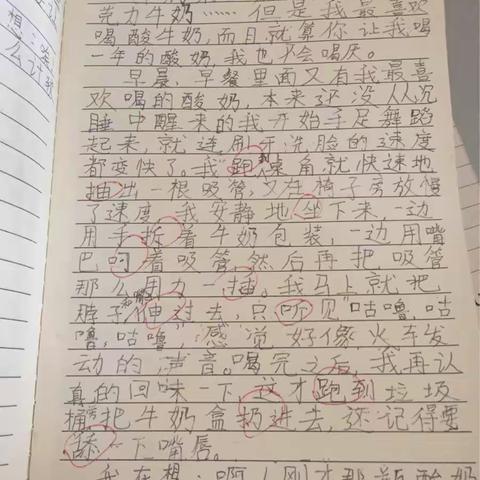 克力牛奶……但是我最喜欢
喝酸牛奶,而且就算你让我喝
一年的酸奶,我也不会喝厌。
早晨,早餐里面又有我最喜
欢喝的酸奶,本来还没从沉
睡中醒来的我开始手足舞蹈
起来,就连刷牙洗脸的速度
都变快了。我跑到桌角就快速地
抽出一根吸管,又在椅子旁放慢
了速度,我安静地坐下来,一边
用手拆着牛奶包装,一边用嘴
巴叼着吸管,然后再把吸管
那么用力一插。我马上就把
脖子伸过去,只听见"咕噜,咕
噜,咕噜",感觉好像火车发
动的声音。喝完之后,我再认
真的回味一下,这才跑到垃圾
桶旁把牛奶盒扔进去,还记得要
舔一下嘴唇。
我在想:啊!刚才那瓶酸奶
想:
么计